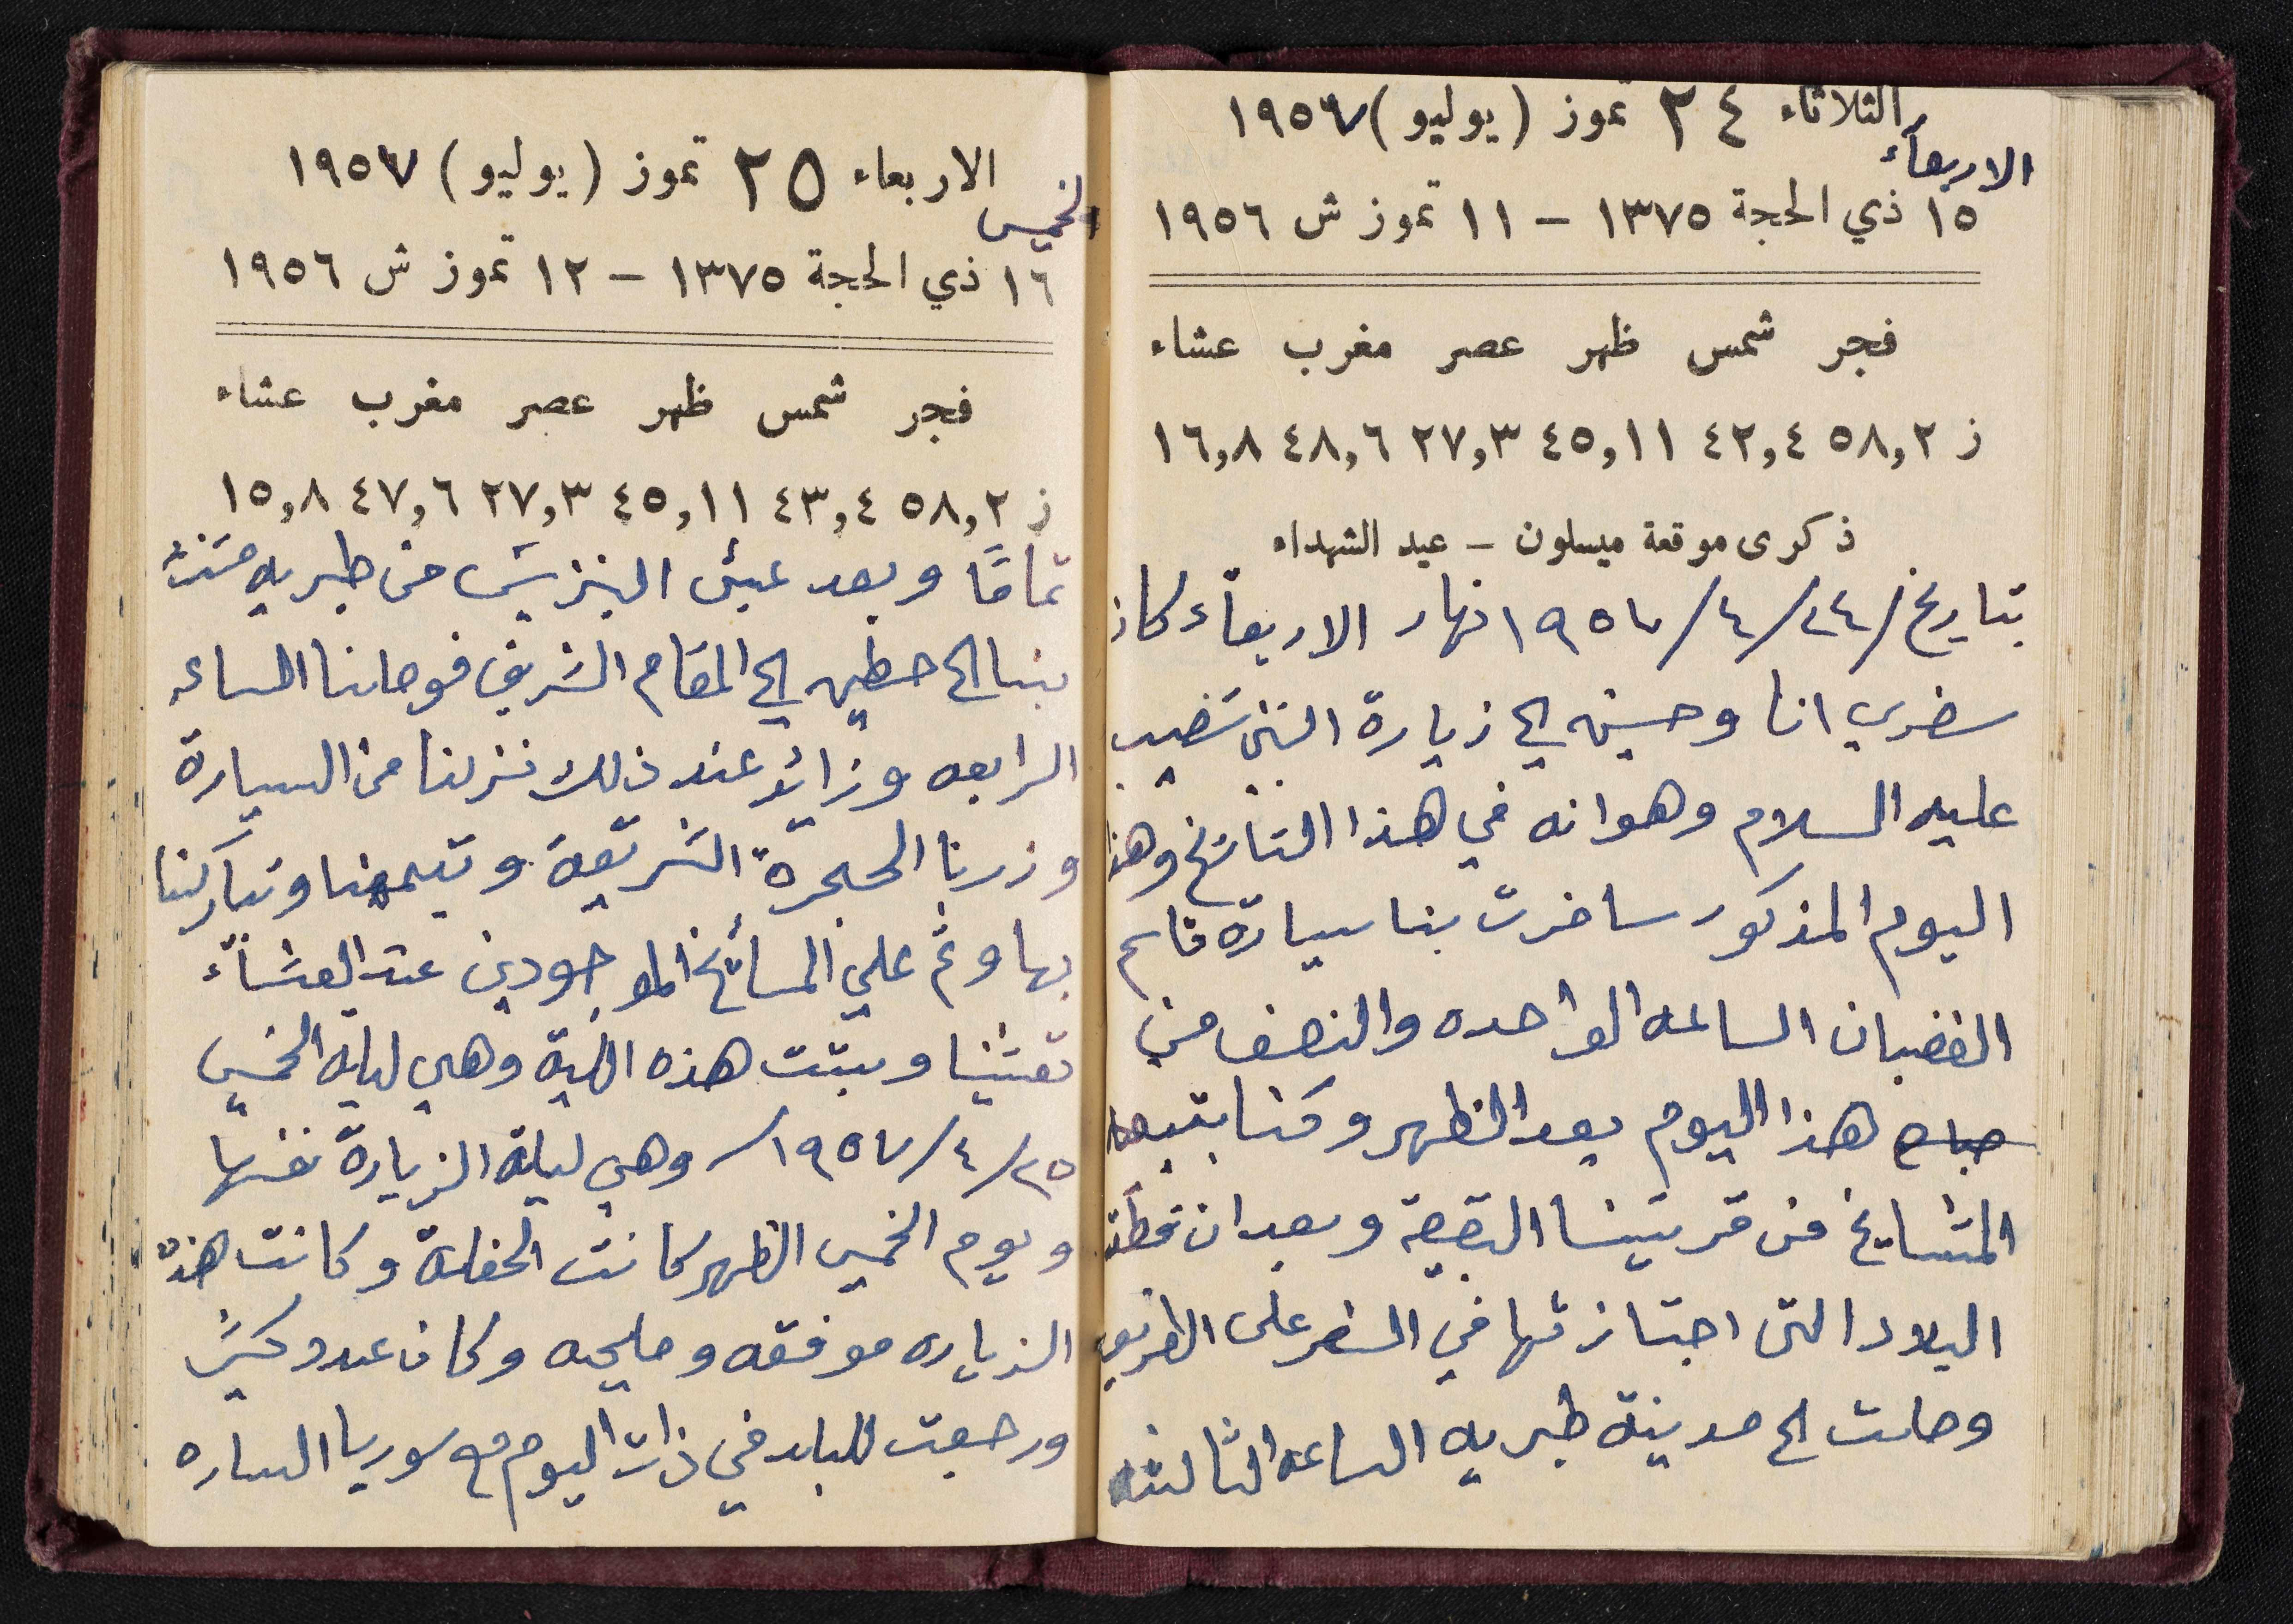 الثلاثاء ٢٤ تموز (يوليو) ١٩٥٧
الاربعاء
١٥ ذي الحجة ١٣٧٥ - ١١ تموز ش ١٩٥٦
فجر شمس ظهر عصر مغرب عشاء
ز ٥٨,٢ ٤٢,٤ ٤٥,١١ ٢٧,٣ ٤٨,٦ ١٦,٨
ذكرى موقعة ميسلون - عيد الشهداء
بتاريخ / ٢٤/ ٤/ ١٩٥٧ نهار الاربعاء كان
سفري انا وحسين الى زيارة النبي شعيب
عليه السلام وهو انه في هذا التاريخ وهذا
اليوم المذكور سافرت بنا سيارة قاسم
الغضبان الساعه الواحده والنصف من
صباح هذا اليوم بعد الظهر وكنا بتبعه
المشايخ من قريتنا البقيعة وبعد ان قطة
البلاد التي اجتازتها في السفر على الطريق
وصلت الى مدينة طبريه الساعه الثالثه
الاربعاء ٢٥ تموز (يوليو) ١٩٥٧
الخميس
١٦ ذي الحجة ١٣٧٥ - ١٢ تموز ش ١٩٥٦
فجر شمس ظهر عصر مغرب عشاء
ز ٥٨,٢ ٤٣,٤ ٤٥,١١ ٢٧,٣ ٤٧,٦ ١٥,٨
تمامًا وبعد البنزين من طبريه
بنا الى حطين الى المقام الشريف فوصلنا الساعه
الرابعه وزائد عند ذلك نزلنا من السيارة
وزرنا الحجرة الشريفة وتيمنا وتباركنا
بها وثم على المشائخ الموجودين عند العشاء
تعشينا وبتت هذه اللية وهي ليلة الخميس
٢٥/ ٤/ ١٩٥٧/ وهي ليلة الزيارة نفسها
ويوم الخميس الظهر كانت الحفلة وكانت هذه
الزياره موفقه ومليحه وكان عدد كبير
ورجعت للبلد في ذات اليوم مع سوريا الساره